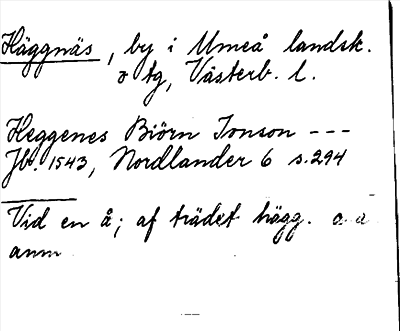 Häggnäs, by i Umeå landsk.
o tg, Västerb. l.
Heggenes Biörn Jonson ---
Jb. 1543, Nordlander 6 s. 294
Vid en å; af trädet hägg. o. a
anm